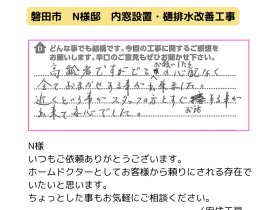 磐田市　N様邸　内窓設置・樋排水改善工事
Q どんな事でも結構です。今回の工事に関するご感想を
お願いします。辛口のご意見もぜひお聞かせ下さい。
お願いしたら
高齢者ですがどこ の心配なく
全ておまかせする事が出来ました。
近くという事からスタッフの方とすぐ する事が
お話
出来て安心でした。
N様
いつもご依頼ありがとうございます。
ホームドクターとしてお客様から頼りにされる存在で
いたいと思います。
ちょっとした事もお気軽にご相談ください。